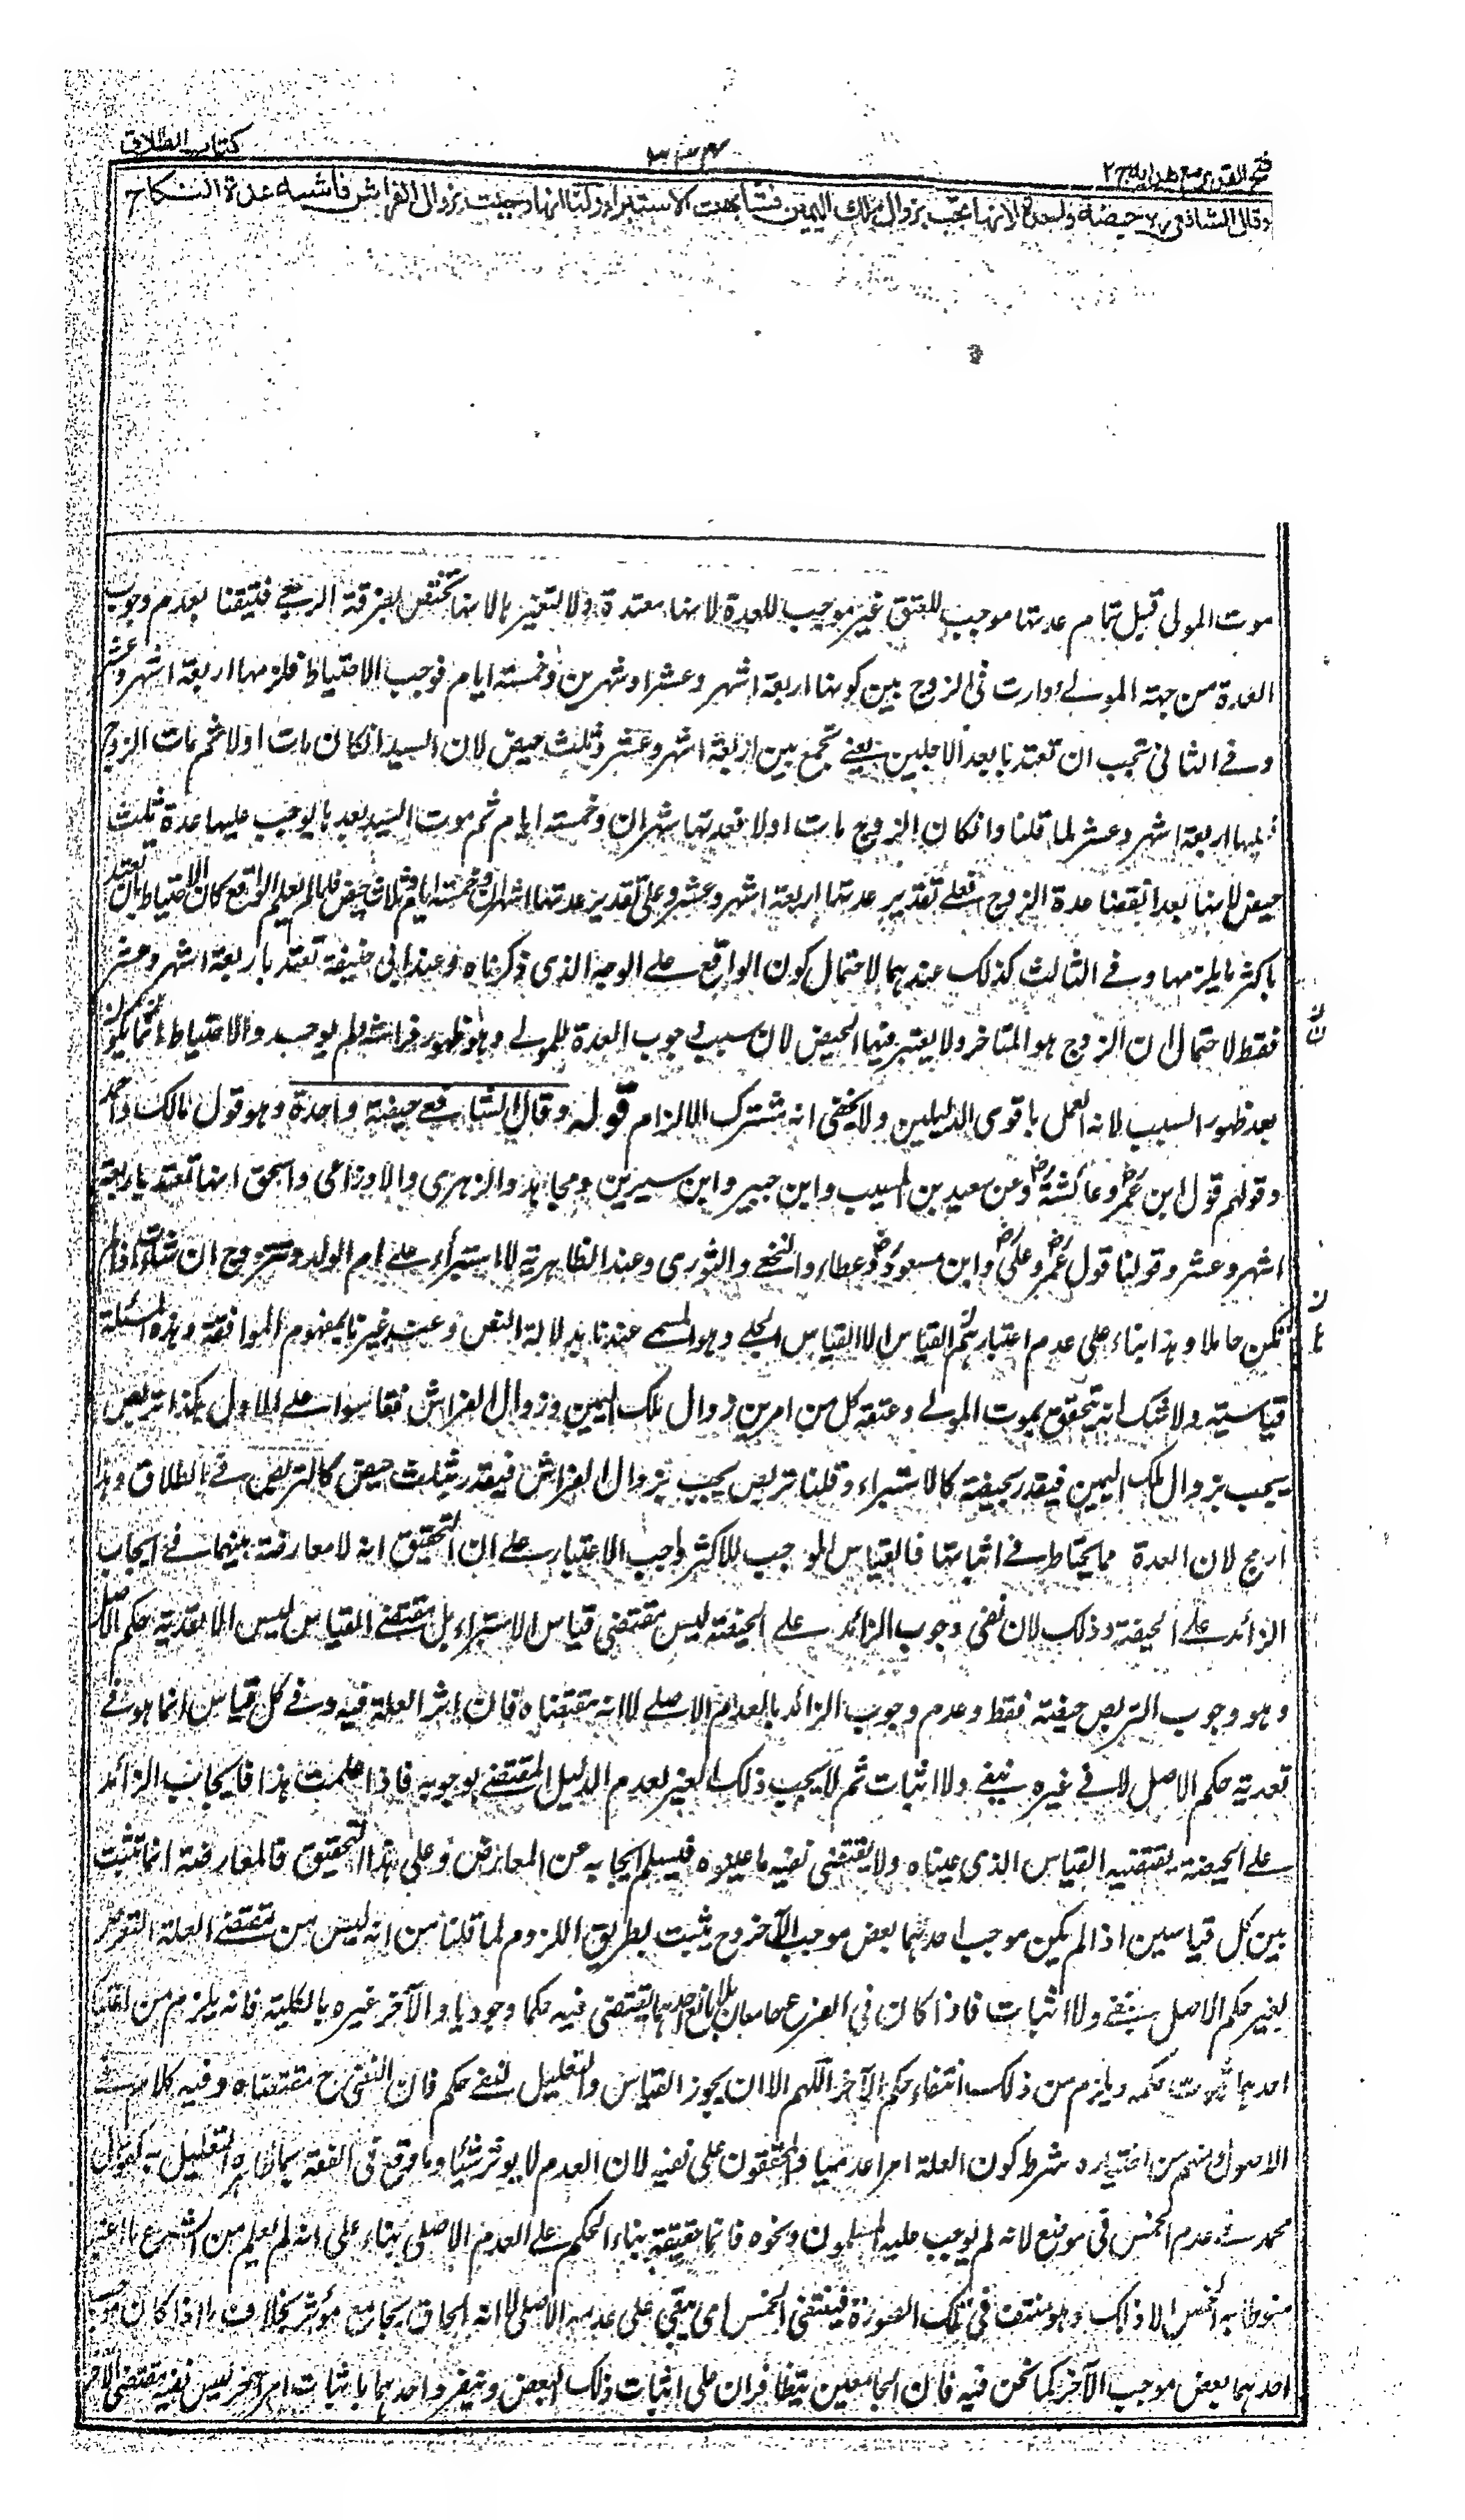 فتح القدير مع هدايه ج٢
٤٣٣
كتاب الطلاق
وقال الشافعي رح حيضة واحدة لانها تجب بزوال ملك اليمين فشابهت الاستبراء ولنا انها وجبت بزوال الفراش فاشبه عدة النكاح
موت المولى قبل تمام عدتها موجب للعتق غير موجب للعدة لانها معتدة ولا تتغير لانها تختص بفرقة الرجعي فتيقنا بعدم وجوب
العدة من جهة المولى ودارت في الزوج بين كونها اربعة اشهر وعشرا وشهرين وخمسة ايام فوجب الاحتياط فلزمها اربعة اشهر وعشر
وفي الثاني تجب ان تعتد بابعد الاجلين يعني تجمع بين اربعة اشهر وعشر وثلث حيض لان السيد انكان مات اولا ثم مات الزوج
فعليها اربعة اشهر وعشر لما قلنا وانكان الزوج مات اولا فعدتها شهران وخمسة ايام ثم موت السيد بعد ما يوجب عليها عدة ثلث
حيض لانها بعد انقضا عدة الزوج فعلى تقدير عدتها اربعة اشهر وعشر وعلى تقدير عدتها شهران وخمسة ايام وثلاث حيض فلما لم يعلم الواقع كان الاحتياط بان تعتد
باكثر ما يلزمها وفي الثالث كذلك عندهما لاحتمال كون الواقع على الوجه الذي ذكرناه وعند ابي حنيفة تعتد باربعة اشهر وعشر
فقط لاحتمال ان الزوج هو المتاخر ولا يعتبر فيها الحيض لان سبب وجوب العدة للمولى وهو ظهور فراشه لم يوجد والاحتياط انما يكون
بعد ظهور السبب لانه العمل باقوى الدليلين ولا يخفى انه مشترك الالزام قوله وقال الشافعي حيضة واحدة وهو قول مالك واحمد
وقولهم قول ابن عمر رض وعائشة رض وعن سعيد بن المسيب وابن جبير وابن سيرين ومجاهد والزهري والاوزاعي واسحق انها تعتد باربعة
اشهر وعشر وقولنا قول عمر رض وعلي رض وابن مسعود رض وعطاء والنخعي والثوري وعند الظاهرية لا استبراء على ام الولد وتتزوج ان شاءت اذا لم
تكن حاملا وهذا بناء على عدم اعتبارهم القياس الا القياس الجلي وهو المسمى عندنا بدلالة النص وعند غيرنا بمفهوم الموافقة وهذه المسئلة
قياسية ولا شك انه تحقق بموت المولى وعتقه كل من امرين زوال ملك اليمين وزوال الفراش فقاسوا على الاول هكذا تربص
يجب بزوال ملك اليمين فيقدر بحيضة كالاستبراء وقلنا تربص يجب بزوال الفراش فيقدر بثلث حيض كالتربص في الطلاق وهذا
ارجح لان العدة مما يحتاط في اثباتها فالقياس الموجب للاكثر واجب الاعتبار على ان التحقيق انه لا معارضة بينهما في ايجاب
الزائد على الحيضة وذلك لان نفي وجوب الزائد على الحيضة ليس مقتضى قياس الاستبراء بل مقتضى القياس ليس الا تعدية حكم الاصل
وهو وجوب التربص حيضة فقط وعدم وجوب الزائد بالعدم الاصلي لا انه مقتضاه فان اثر العلة فيه وفي كل قياس انما هو في
تعدية حكم الاصل لا في غيره بنفي ولا اثبات ثم لا يجب ذلك الغير لعدم الدليل المقتضي لوجوبه فاذا علمت هذا فايجاب الزائد
على الحيضة يقتضيه القياس الذي عيناه ولا يقتضى نفيه ما عينوه فيسلم ايجابه عن المعارض وعلى هذا التحقيق فالمعارضة انما تثبت
بين كل قياسين اذا لم يكن موجب احدهما بعض موجب الآخر وح يثبت بطريق اللزوم لما قلنا من انه ليس من مقتضى العلة التعرض
لغير حكم الاصل بنفي ولا اثبات فاذا كان في الفرع جامعان بلا مانع احدهما يقتضى فيه حكما وجوديا والآخر غيره بالكلية فانه يلزم من اعتبار
احدهما ثبوت حكمه ويلزم من ذلك انتفاء حكم الآخر اللهم الا ان يجوز القياس والتعليل لنفي حكم فان النفي ح مقتضاه وفيه كلام في
الاصول ومنهم من اختياره شرط كون العلة امرا عدميا والمحققون على نفيه لان العدم لا يوثر شيئا وما وقع في الفقه مما ظاهره التعليل به كقول
محمد في عدم الخمس في موضع لانه لم يوجب عليه المسلمون ونحوه فانما حقيقة بناء الحكم على العدم الاصلي بناء على انه لم يعلم من الشرع ما اعتبر
منوطا به الخمس الا ذلك وهو منتف في تلك الصورة فينتفي الخمس اي يبقى على عدمه الاصلي لا انه الحاق بجامع مؤثر بخلاف ما اذا كان موجب
احدهما بعض موجب الآخر كما نحن فيه فان الجامعين يتظافران على اثبات ذلك البعض وينفرد احدهما باثبات امر آخر ليس نفيه مقتضى الآخر